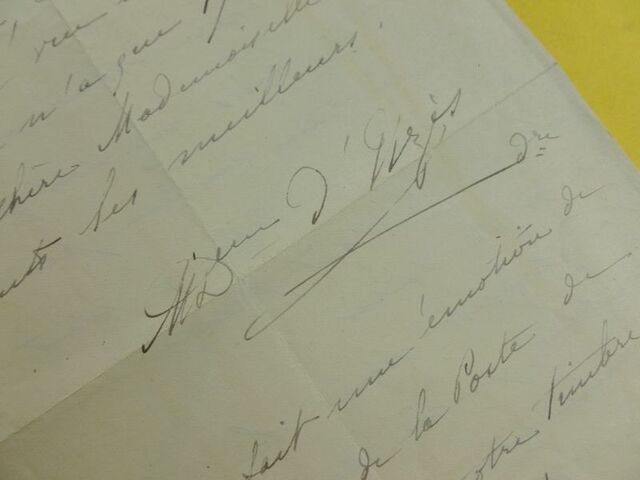 vu
n'a que
chère Mademoiselle
ses meilleurs.
d'Uzès
dre
fait une émotion de
de la Poste de
otre timbre